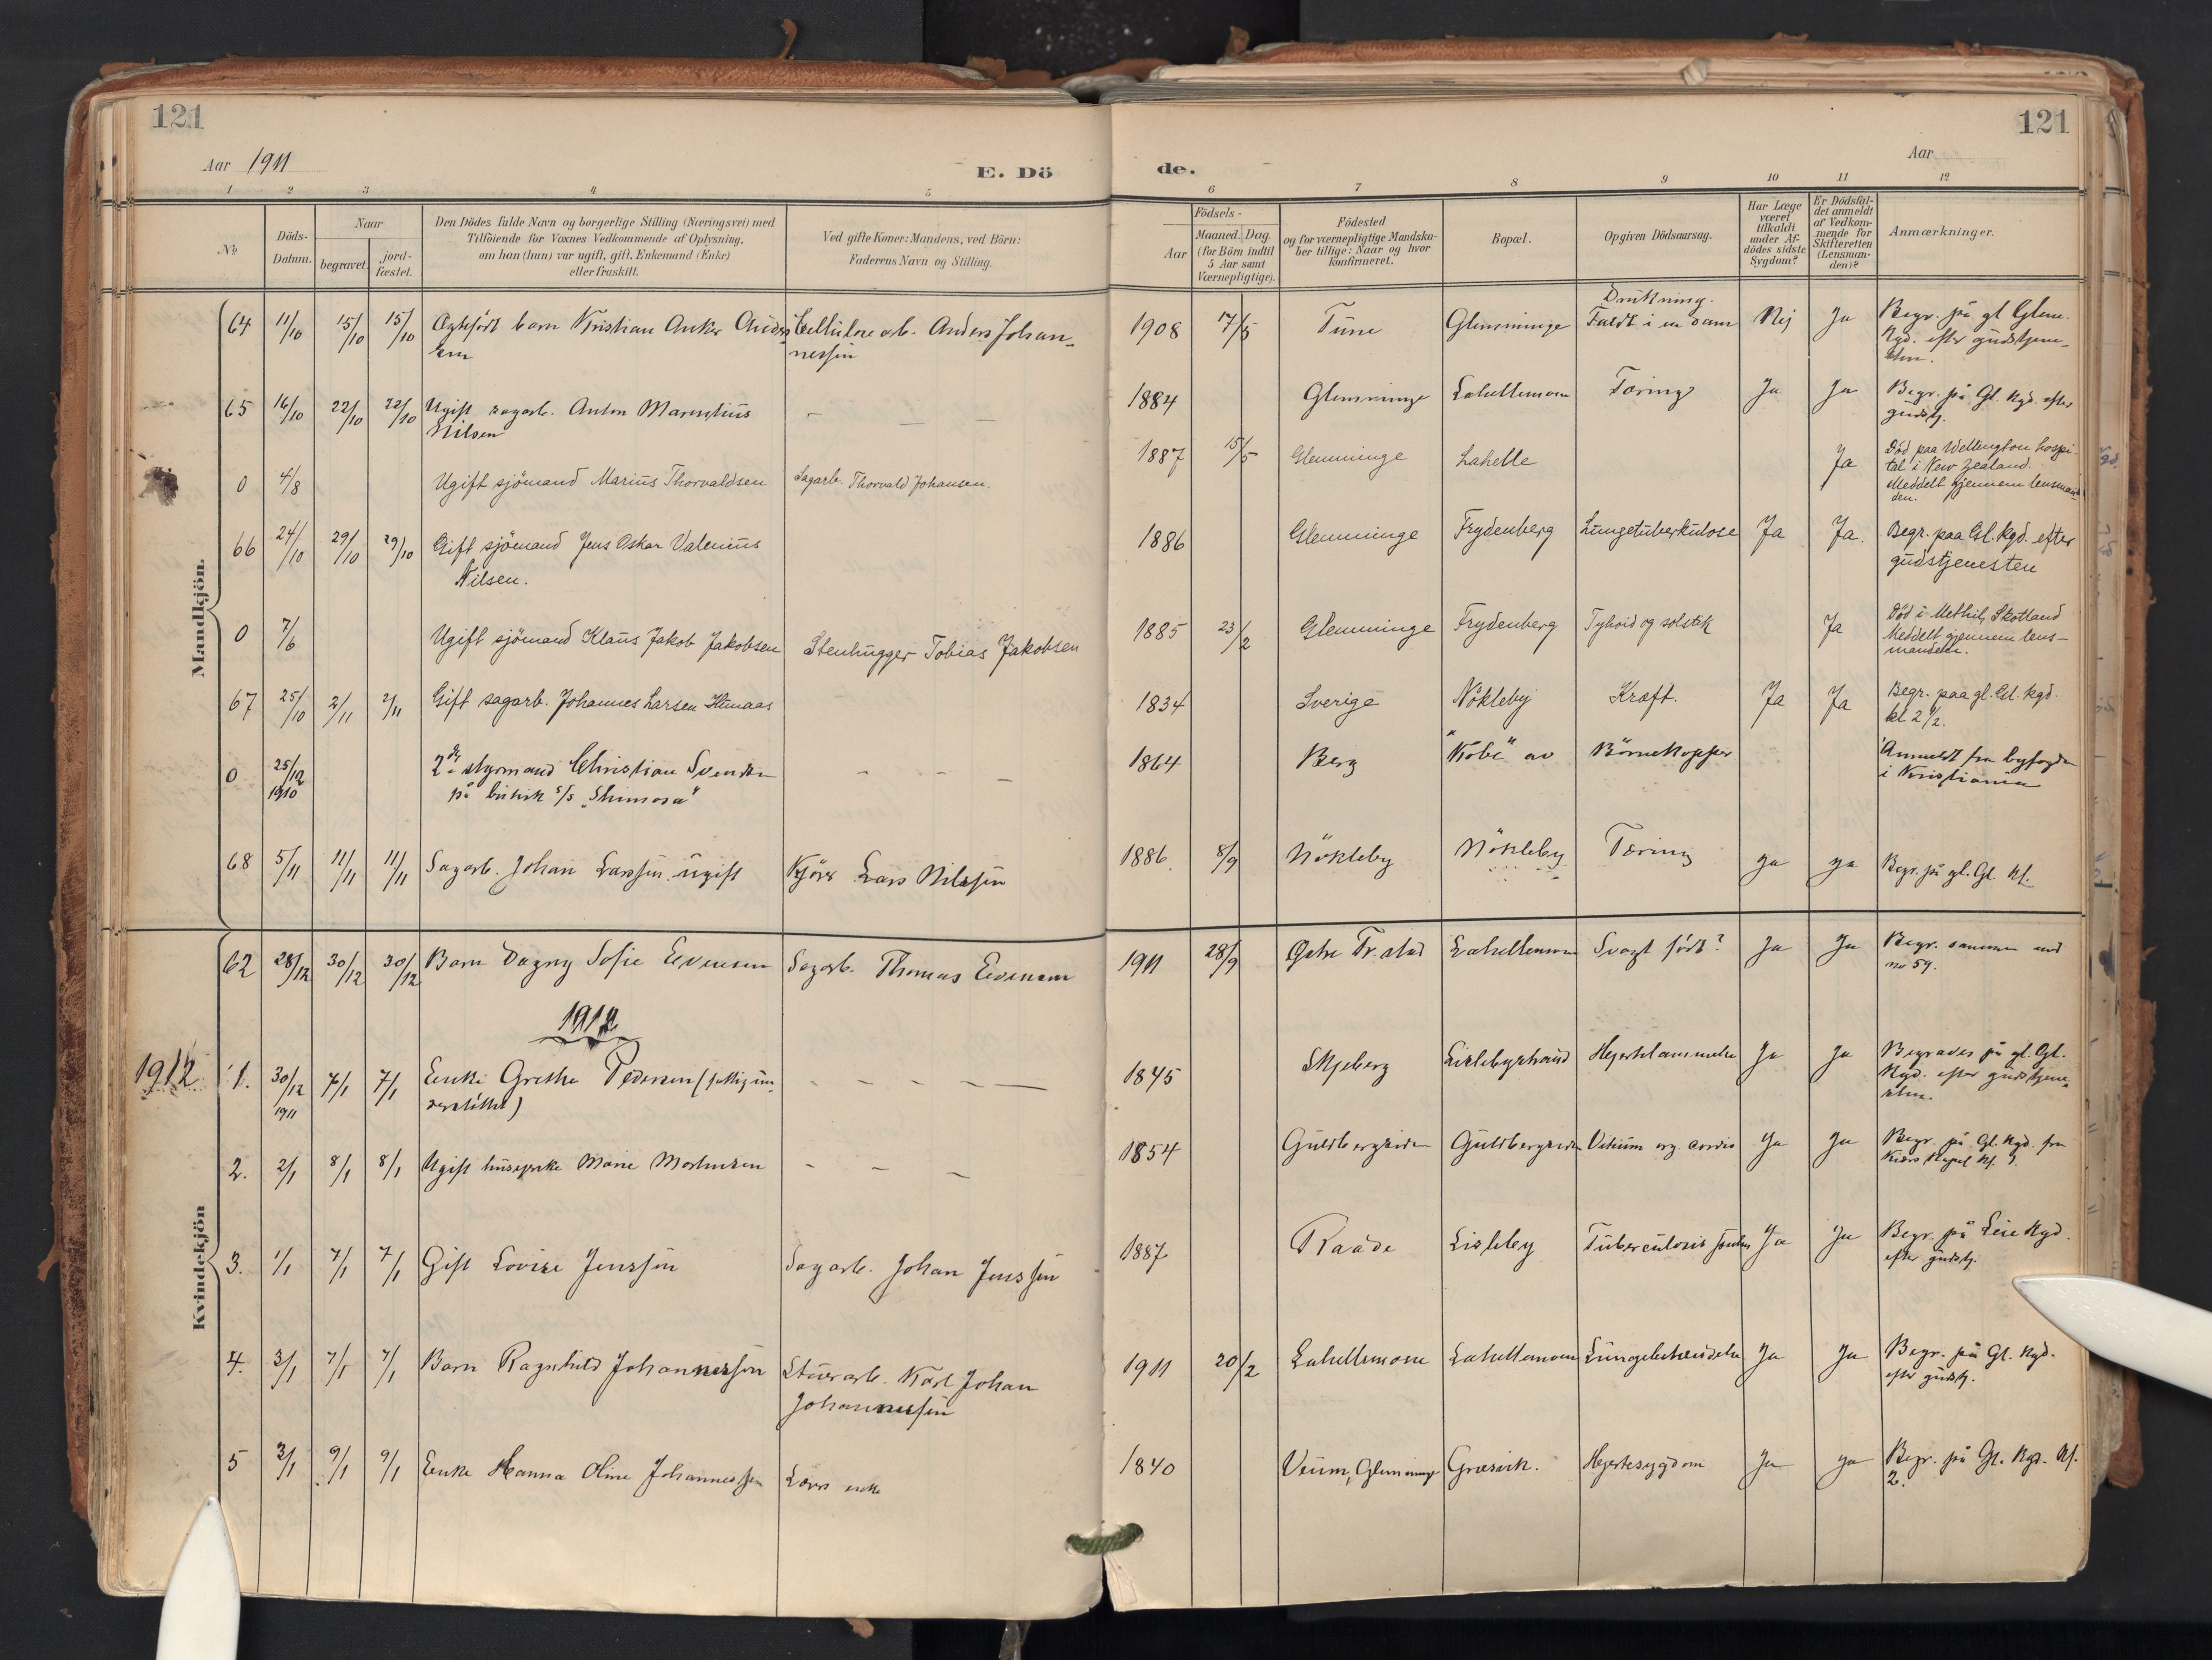 121
121
Aar 1911
E. Dö
de.
Aar
1 2 3 4 5 6 7 8 9 10 11 12
No
Döds-Datum.
Naar
begravet.
jord-fæstet.
Den Dödes fulde Navn og borgerlige Stilling (Næringsvei) med
Tilföiende for Voxnes Vedkommende af Oplysning,
om han (hun) var ugift, gift, Enkemand (Enke)
eller fraskilt.
Ved gifte Koner: Mandens, ved Börn:
Faderens Navn og Stilling.
Födsels-
Aar
Maaned. Dag.
(for Börn indtil
5 Aar samt
Værnepligtige).
Födested
og for værnepligtige Mandska-
ber tillige: Naar og hvor
konfirmeret.
Bopæl.
Opgiven Dödsaarsag.
Har Læge
været
tilkaldt
under Af-
dödes sidste
Sygdom?
Er Dödsfal-
det anmeldt
af Vedkom-
mende for
Skifteretten
(Lensman-
den)?
Anmærkninger.
Mandkjön.
64 11/10 15/10 15/10 Ægtefödt barn Kristian Anker Anders
sen
Cellulosearb. Anders Johan-
nessen
1908 17/5 Tune Glemminge
Drukning.
Faldt i en dam Nej Ja
Begr. på gl Glem.
Kgd. efter gudstjene-
sten.
65 16/10 22/10 22/10 Ugift sagarb. Anton Marentius
Nilsen
— — —
1884 Glemminge Lahellemoen Tæring Ja Ja
Begr. på Gl. Kgd. efter
gudstj.
0 4/8 Ugift sjömand Marius Thorvaldsen Sagarb. Thorvald Johansen.
1887 15/5 Glemminge Lahelle Ja
Död paa Wellington hospi-
tal i New Zealand.
Meddelt gjennem lensman
den.
66 24/10 29/10 29/10 Gift sjömand Jens Oskar Valerius
Nilsen.
1886 Glemminge Frydenberg Lungetuberkulose Ja Ja.
Begr. paa Gl. kgd. efter
gudstjenesten
0 7/6 Ugift sjömand Klaus Jakob Jakobsen Stenhugger Tobias Jakobsen
1885 23/2 Glemminge Frydenberg Tyfoid og solstik Ja
Död i Methil, Skotland
Meddelt gjennem lens-
manden.
67 25/10 2/11 2/11 Gift sagarb. Johannes Larsen
1834 Sverige Nökleby Kræft. Ja Ja
Begr. paa gl. Gl. kgd.
kl 2 1/2.
0 25/12
1910
2den styrmand Christian Svendsen
på britisk s/s "Shimosa"
— — —
1864 Berg "Kobe" av Börnekopper
Anmeldt fra byfogden
i Kristiania
68 5/11 11/11 11/11 Sagarb. Johan Larssen ugift Kjörer Lars Nilssen
1886 8/9 Nökleby Nökleby Tæring ja ja Begr. på gl. Gl. Kl.
Kvindekjön
62 28/12 30/12 30/12 Barn Dagny Sofie Evensen Sagarb. Thomas Evensen
1911 28/9 Östre Fr.stad Lahellemoen Svagt født? Ja Ja
Begr. sammen med
no 59.
1912
1912 1. 30/12
1911
7/1 7/1 Enke Grethe Pedersen (fattigun-
derstöttet)
— — — —
1845 Skjeberg Lislebystrand Hjertelammelse Ja Ja
Begraves på gl. Gl.
Kgd. efter gudstjene-
sten.
2. 2/1 8/1 8/1 Ugift huseierske Marie Mortensen — — —
1854 Guldbergsiden Guldbergsiden Vitium org. cordis Ja Ja
Begr. på Gl. Kgd. fra
3. 1/1 7/1 7/1 Gift Lovise Jenssen Sagarb. Johan Jenssen
1887 Raade Lisleby Tuberculosis Ja Ja
Begr. på Leie Kgd.
efter gudstj.
4. 3/1 7/1 7/1 Barn Ragnhild Johannessen Stuerarb. Karl Johan
Johannessen
1911 20/2 Lahellemoen Lahellemoen Lungebetændelse Ja Ja
Begr. på Gl. Kgd.
efter gudstj.
5 3/1 9/1 9/1 Enke Hanna Oline Johannessen enke
1840 Veum, Glemminge Græsvik. Hjertesygdom Ja Ja
Begr. på Gl. Kgd. Kl.
2.